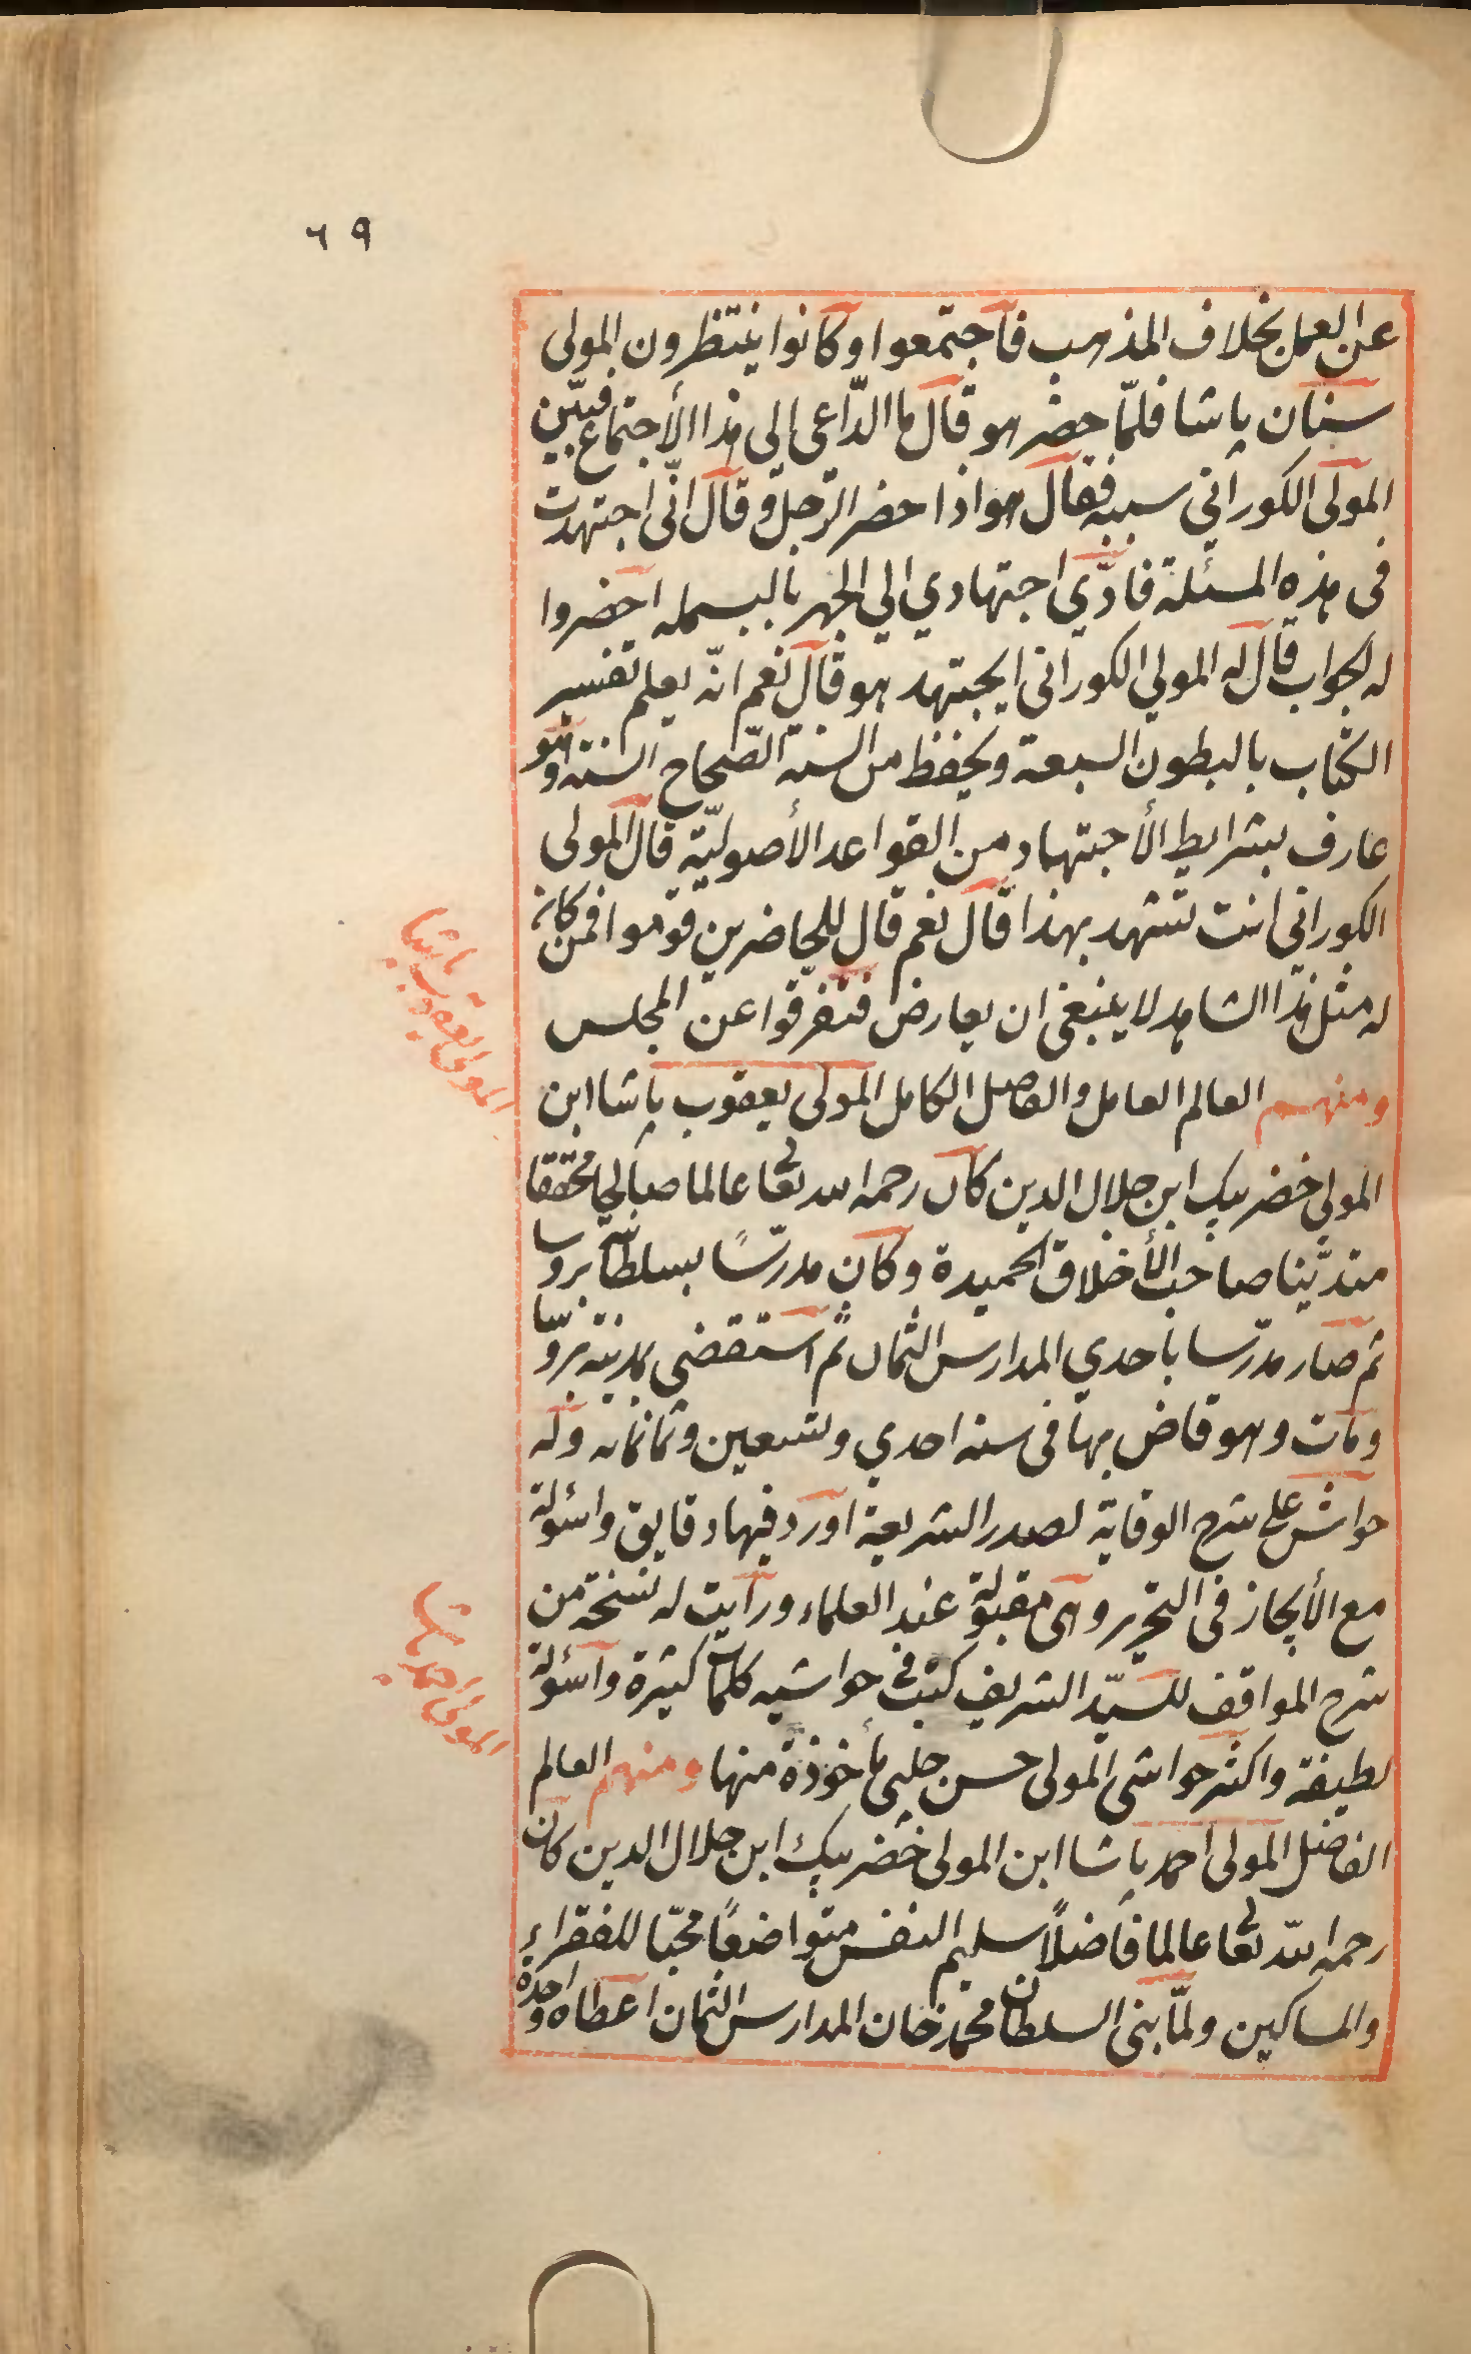 ٦٩
عن العمل بخلاف المذهب فاجتمعوا وكانوا ينتظرون المولى
سنان پاشا فلمّا حضر هو قال ما الدّاعي الي هذا الأجتماع فبيّن
المولى الكوراني سببه فقال هو اذا حضر الرّجل وقال انّي اجتهدت
في هذه المسئلة فادّي اجتهادي الي الجهر بالبسمله احضروا
له لجواب قال له المولي الكوراني ايجتهد هو قال نعم انّه يعلم تفسير
الكتاب بالبطون السبعة ويحفظ من السنة الصّحاح الستة وهو
عارف بشرايط الأجتهاد من القواعد الأصوليّة قال المولى
الكوراني انت تشهد بهذا قال نعم قال للحاضرين قوموا فمن كان
له مثل هذا الشاهد لا ينبغي ان يعارض فتفرقوا عن المجلس
المولى يعقوب پاشا
ومنهم العالم العامل والفاصل الكامل المولى يعقوب پاشا ابن
المولي خضر بيك ابن جلال الدين كان رحمه الله تعا عالما صالحا محققا
متدينا صاحب الأخلاق الحميدة وكان مدرّسًا بسلطانيّة بروسا
ثم صار مدرّسا باحدي المدارس الثمان ثم استقضي بمدينة بروسا
ومات وهو قاض بها في سنه احدي وتسعين وثمانمائه وله
حواش على شرح الوقاية لصدر الشريعة اورد فيها دقايق واسؤلة
مع الأيجاز في التحرير وهي مقبولة عند العلماء ورايت له نسخة من
شرح المواقف للسيّد الشريف كتب في حواشيه كلمات كثيرة واسؤلة
لطيفة واكثر حواشي المولى حسن چلبي مأخوذة منها ومنهم العالم
المولى احمد پاشا
الفاضل المولى احمد پاشا ابن المولى خضر بيك ابن جلال الدين كان
رحمه الله تعا عالما فاضلًا سليم النفس متواضعًا محبّا للفقراء
والمساكين ولمّا بنى السلطان محمد خان المدارس الثمان اعطاه واحدة